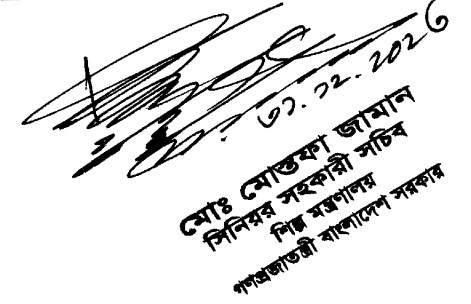 ৩১.১২.২০২৩
মোঃ মোস্তফা জামান
সিনিয়র সহকারী সচিব
শিল্প মন্ত্রণালয়
গণপ্রজাতন্ত্রী বাংলাদেশ সরকার